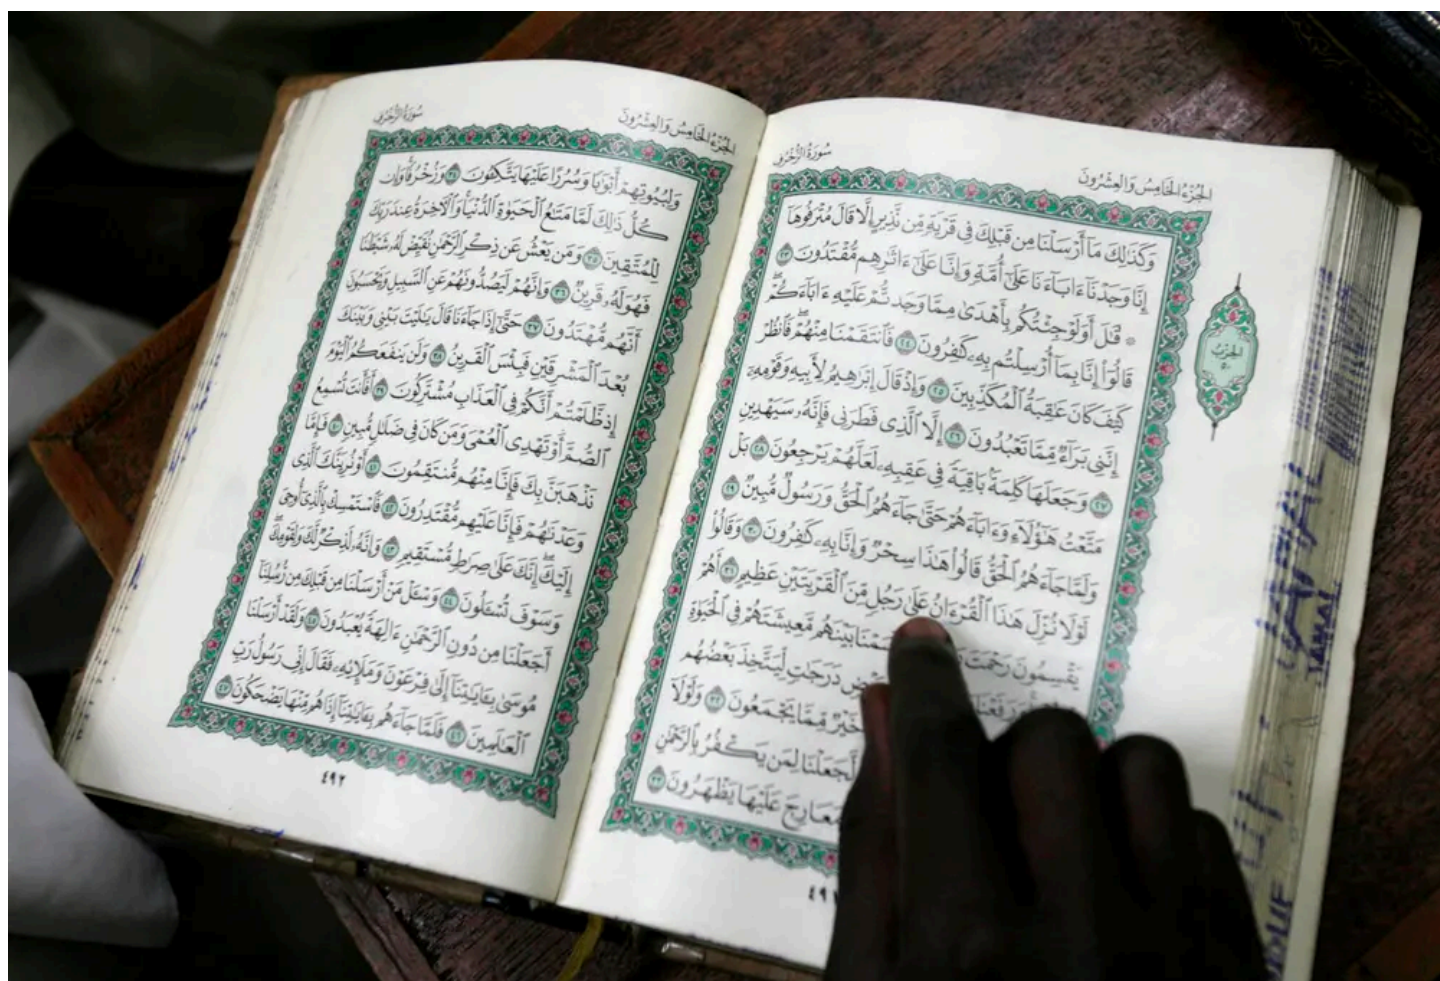 الجُزْءُ الخَامِسُ وَالعِشْرُونَ
سُورَةُ الزُّخْرُفِ
وَكَذَٰلِكَ مَآ أَرْسَلْنَا مِن قَبْلِكَ فِي قَرْيَةٍ مِّن نَّذِيرٍ إِلَّا قَالَ مُتْرَفُوهَآ
إِنَّا وَجَدْنَآ ءَابَآءَنَا عَلَىٰٓ أُمَّةٍ وَإِنَّا عَلَىٰٓ ءَاثَٰرِهِم مُّقْتَدُونَ ٢٣
۞ قُلْ أَوَلَوْ جِئْتُكُم بِأَهْدَىٰ مِمَّا وَجَدتُّمْ عَلَيْهِ ءَابَآءَكُمْۖ
قَالُوٓاْ إِنَّا بِمَآ أُرْسِلْتُم بِهِۦ كَٰفِرُونَ ٢٤ فَٱنتَقَمْنَا مِنْهُمْۖ فَٱنظُرْ
كَيْفَ كَانَ عَٰقِبَةُ ٱلْمُكَذِّبِينَ ٢٥ وَإِذْ قَالَ إِبْرَٰهِيمُ لِأَبِيهِ وَقَوْمِهِۦٓ
إِنَّنِي بَرَآءٌ مِّمَّا تَعْبُدُونَ ٢٦ إِلَّا ٱلَّذِي فَطَرَنِي فَإِنَّهُۥ سَيَهْدِينِ
٢٧ وَجَعَلَهَا كَلِمَةَۢ بَاقِيَةً فِي عَقِبِهِۦ لَعَلَّهُمْ يَرْجِعُونَ ٢٨ بَلْ
مَتَّعْتُ هَٰٓؤُلَآءِ وَءَابَآءَهُمْ حَتَّىٰ جَآءَهُمُ ٱلْحَقُّ وَرَسُولٌ مُّبِينٌ ٢٩
وَلَمَّا جَآءَهُمُ ٱلْحَقُّ قَالُواْ هَٰذَا سِحْرٌ وَإِنَّا بِهِۦ كَٰفِرُونَ ٣٠ وَقَالُواْ
لَوْلَا نُزِّلَ هَٰذَا ٱلْقُرْءَانُ عَلَىٰ رَجُلٍ مِّنَ ٱلْقَرْيَتَيْنِ عَظِيمٍ ٣١ أَهُمْ
يَقْسِمُونَ رَحْمَتَ بَيْنَهُم مَّعِيشَتَهُمْ فِي ٱلْحَيَوٰةِ
دَرَجَٰتٍ لِّيَتَّخِذَ بَعْضُهُم
خَيْرٌ مِّمَّا يَجْمَعُونَ ٣٢ وَلَوْلَآ
لَّجَعَلْنَا لِمَن يَكْفُرُ بِٱلرَّحْمَٰنِ
عَلَيْهَا يَظْهَرُونَ ٣٣
الحِزْبُ
٥٠
JAMAL
الجُزْءُ الخَامِسُ وَالعِشْرُونَ
سُورَةُ الزُّخْرُفِ
وَلِبُيُوتِهِمْ أَبْوَٰبًا وَسُرُرًا عَلَيْهَا يَتَّكِـُٔونَ ٣٤ وَزُخْرُفًاۚ وَإِن
كُلُّ ذَٰلِكَ لَمَّا مَتَٰعُ ٱلْحَيَوٰةِ ٱلدُّنْيَاۚ وَٱلْءَاخِرَةُ عِندَ رَبِّكَ
لِلْمُتَّقِينَ ٣٥ وَمَن يَعْشُ عَن ذِكْرِ ٱلرَّحْمَٰنِ نُقَيِّضْ لَهُۥ شَيْطَٰنًا
فَهُوَ لَهُۥ قَرِينٌ ٣٦ وَإِنَّهُمْ لَيَصُدُّونَهُمْ عَنِ ٱلسَّبِيلِ وَيَحْسَبُونَ
أَنَّهُم مُّهْتَدُونَ ٣٧ حَتَّىٰٓ إِذَا جَآءَنَا قَالَ يَٰلَيْتَ بَيْنِي وَبَيْنَكَ
بُعْدَ ٱلْمَشْرِقَيْنِ فَبِئْسَ ٱلْقَرِينُ ٣٨ وَلَن يَنفَعَكُمُ ٱلْيَوْمَ
إِذ ظَّلَمْتُمْ أَنَّكُمْ فِي ٱلْعَذَابِ مُشْتَرِكُونَ ٣٩ أَفَأَنتَ تُسْمِعُ
ٱلصُّمَّ أَوْ تَهْدِي ٱلْعُمْيَ وَمَن كَانَ فِي ضَلَٰلٍ مُّبِينٍ ٤٠ فَإِمَّا
نَذْهَبَنَّ بِكَ فَإِنَّا مِنْهُم مُّنتَقِمُونَ ٤١ أَوْ نُرِيَنَّكَ ٱلَّذِي
وَعَدْنَٰهُمْ فَإِنَّا عَلَيْهِم مُّقْتَدِرُونَ ٤٢ فَٱسْتَمْسِكْ بِٱلَّذِيٓ أُوحِيَ
إِلَيْكَۖ إِنَّكَ عَلَىٰ صِرَٰطٍ مُّسْتَقِيمٍ ٤٣ وَإِنَّهُۥ لَذِكْرٌ لَّكَ وَلِقَوْمِكَۖ
وَسَوْفَ تُسْـَٔلُونَ ٤٤ وَسْـَٔلْ مَنْ أَرْسَلْنَا مِن قَبْلِكَ مِن رُّسُلِنَآ
أَجَعَلْنَا مِن دُونِ ٱلرَّحْمَٰنِ ءَالِهَةً يُعْبَدُونَ ٤٥ وَلَقَدْ أَرْسَلْنَا
مُوسَىٰ بِـَٔايَٰتِنَآ إِلَىٰ فِرْعَوْنَ وَمَلَإِيْهِۦ فَقَالَ إِنِّي رَسُولُ رَبِّ
ٱلْعَٰلَمِينَ ٤٦ فَلَمَّا جَآءَهُم بِـَٔايَٰتِنَآ إِذَا هُم مِّنْهَا يَضْحَكُونَ ٤٧
٤٩٢